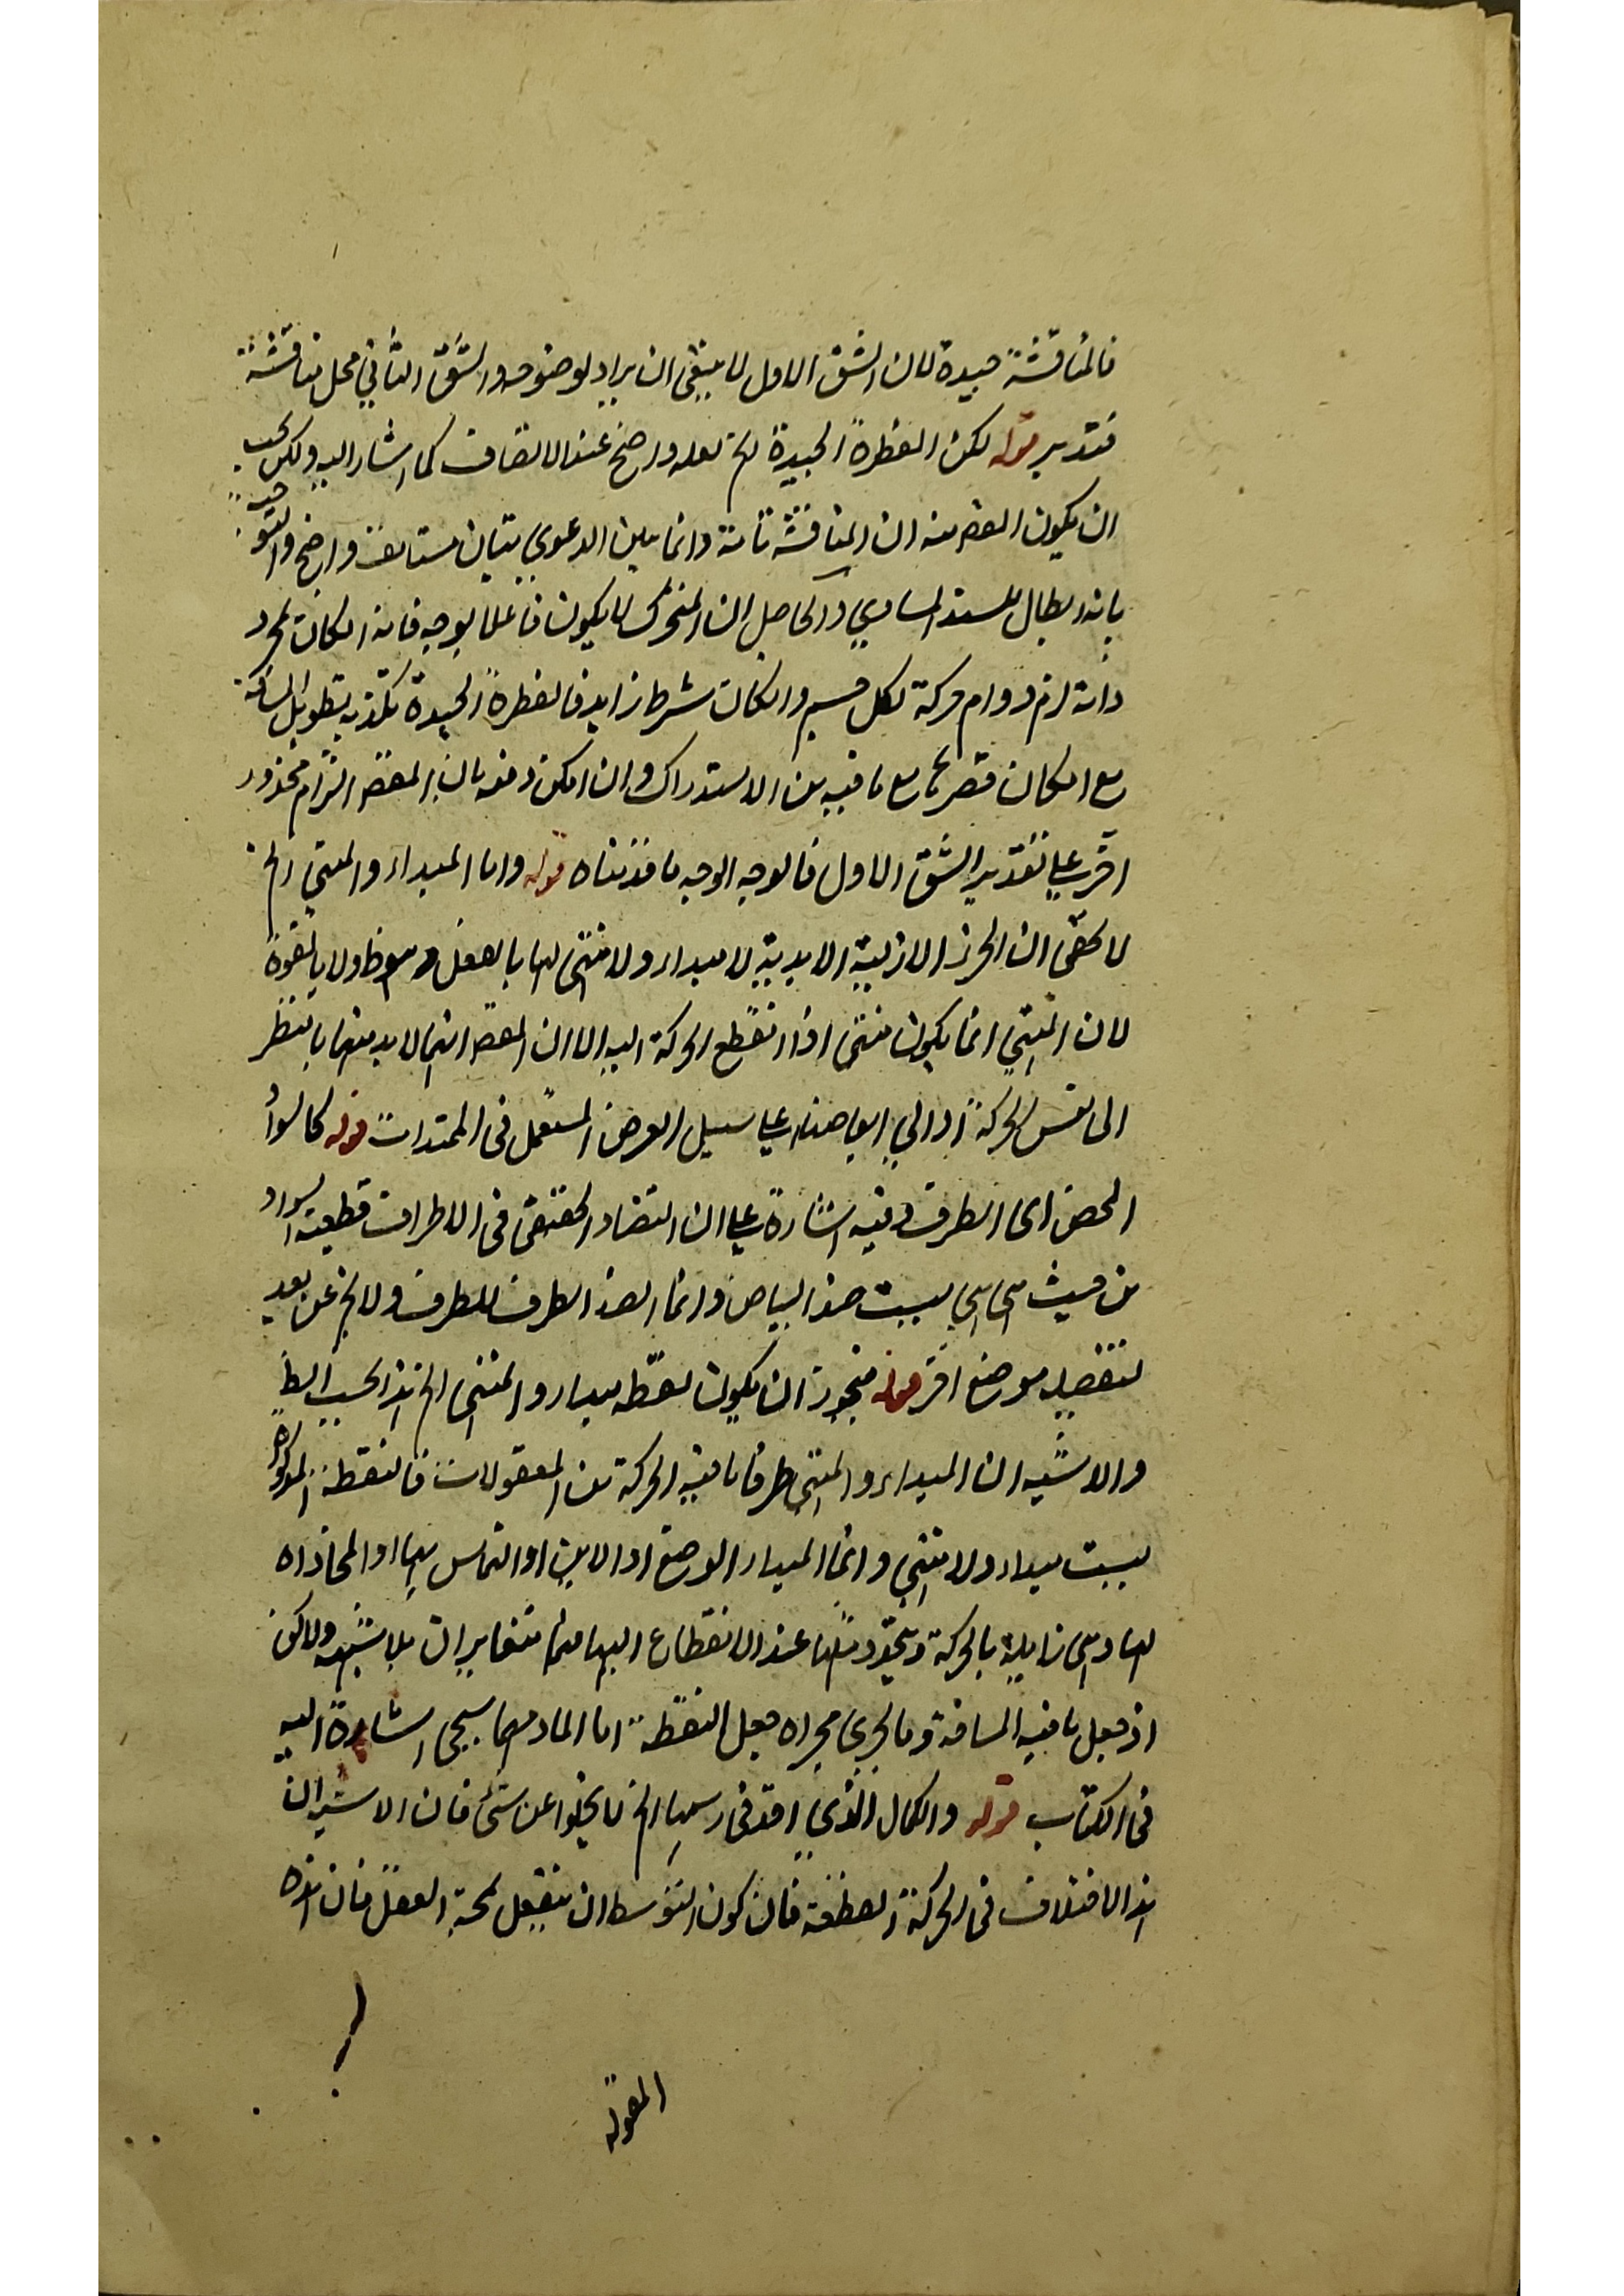 فالمناقشة جيدة لان الشق الاول لا ينبغى ان يراد لوضوحه والشق الثاني محل مناقشة
فتدبر قوله لكن الفطرة الجيدة الخ لعله واضح عند الانصاف كما اشار اليه ولكن يجب
ان يكون الغرض منه ان المناقشة تامة وانما يبين الدعوي ببيان مستانف واضح والتوجيه
بانه ابطال للسند المساوي والحاصل ان المتحرك لا يكون فاعلا بوجه فانه انكان لمجرد
ذاته لزم دوام حركة لكل جسم وانكان بشرط زايد فالفطرة الجيدة تكذبه بتطويل المسافة
مع انكان قصرها مع ما فيه من الاستدراك وان امكن دفعه بان الغرض التزام محذور
اخر علي تقدير الشق الاول فالوجه الوجيه ما قدمناه قوله واما المبداء والمنتهي الخ
لا يخفى ان الحركة الازلية الابدية لا مبداء ولا منتهى لها بالفعل وهو ظ ولا بالقوة
لان المنتهي انما يكون منتهى اذا انقطع الحركة اليه الا ان الغرض انهما لابد منهما بالنظر
الى نفس الحركة او الي ابعاضها علي سبيل الفرض المستعمل فى الممتدات قوله كالسواد
المحض اى الطرف وفيه اشارة علي ان التضاد الحقيقى فى الاطراف قطبيعة السواد
من حيث هى هي ليست ضد البياض وانما الضد الطرف للطرف ولا يخ عن بعد
لتفصيله موضع اخر قوله فيجوز ان يكون نقطه مبداء والمنتهى الخ هذا بحسب الظ
والاشبه ان المبداء والمنتهي طرفا ما فيه الحركة من المقولات فالنقطة المذكورة
ليست مبداء ولا منتهي وانما المبداء الوضع او الاين او التماس بها او المحاذاه
لها وهى زايلة بالحركة ويتجدد مثلها عند الانقطاع اليها فهما متغايران بلا شبهه ولكن
اذ جعل ما فيه المسافة وما يجري مجراه جعل النقطة اما المادمهما سيجى اشارة اليه
فى الكتاب قوله والكمال الذي اخذ فى رسمها الخ لا يخلوا عن شئ فان الاشبه ان
هذا الاختلاف فى الحركة القطعية فان كون المتوسط ان ينتقل لمحة العقل فان هذه
المقولة